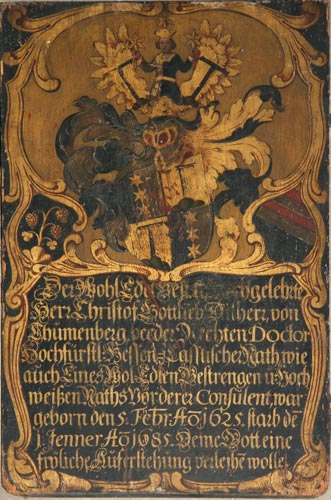 Der Wohl Edel Vest u. Hochgelehrte
Herr Christof Gottlieb Dilherr, von
Thumenberg beeder Rechten Doctor
Hochfürstl. Hessen-Casslischer Rath, wie
auch Eines Wol Edlen Gestrengen u. Hoch
weißen Raths Vörderer Consulent, war
geborn den 5. Febr: Aº 1625. starb dē
1 Jenner Aº 1685. Deme Gott eine
fröliche Auferstehung verleyhē wolle.